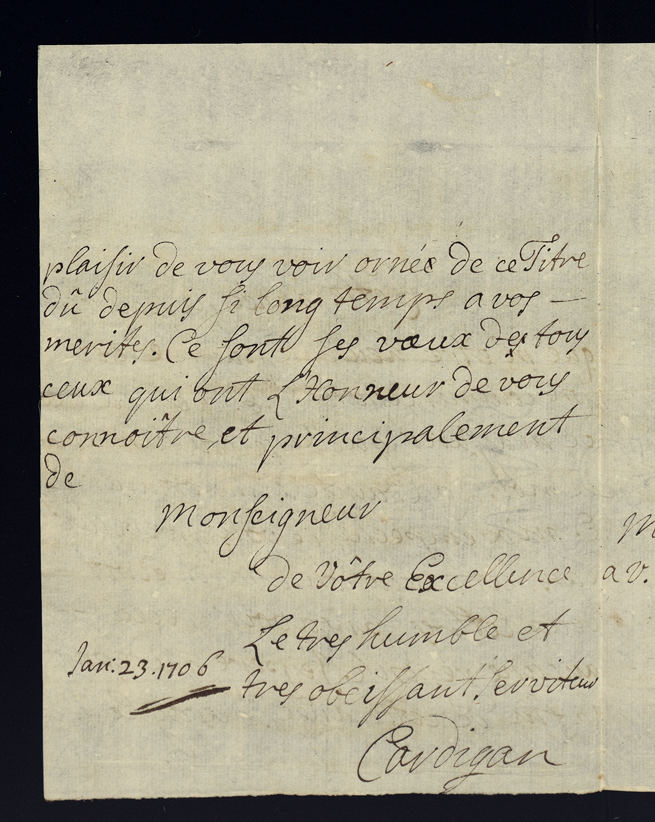 plaisir de vous voir ornée de ce Titre
dû depuis si long temps a vos —
merites. Ce sont ses vœux de tous
ceux qui ont L'Honneur de vous
connoître, et principalement
de
Monseigneur
de Vôtre Excellence
Le tres humble et
Jan: 23. 1706
tres obeissant serviteur
Cardigan
M
a v.